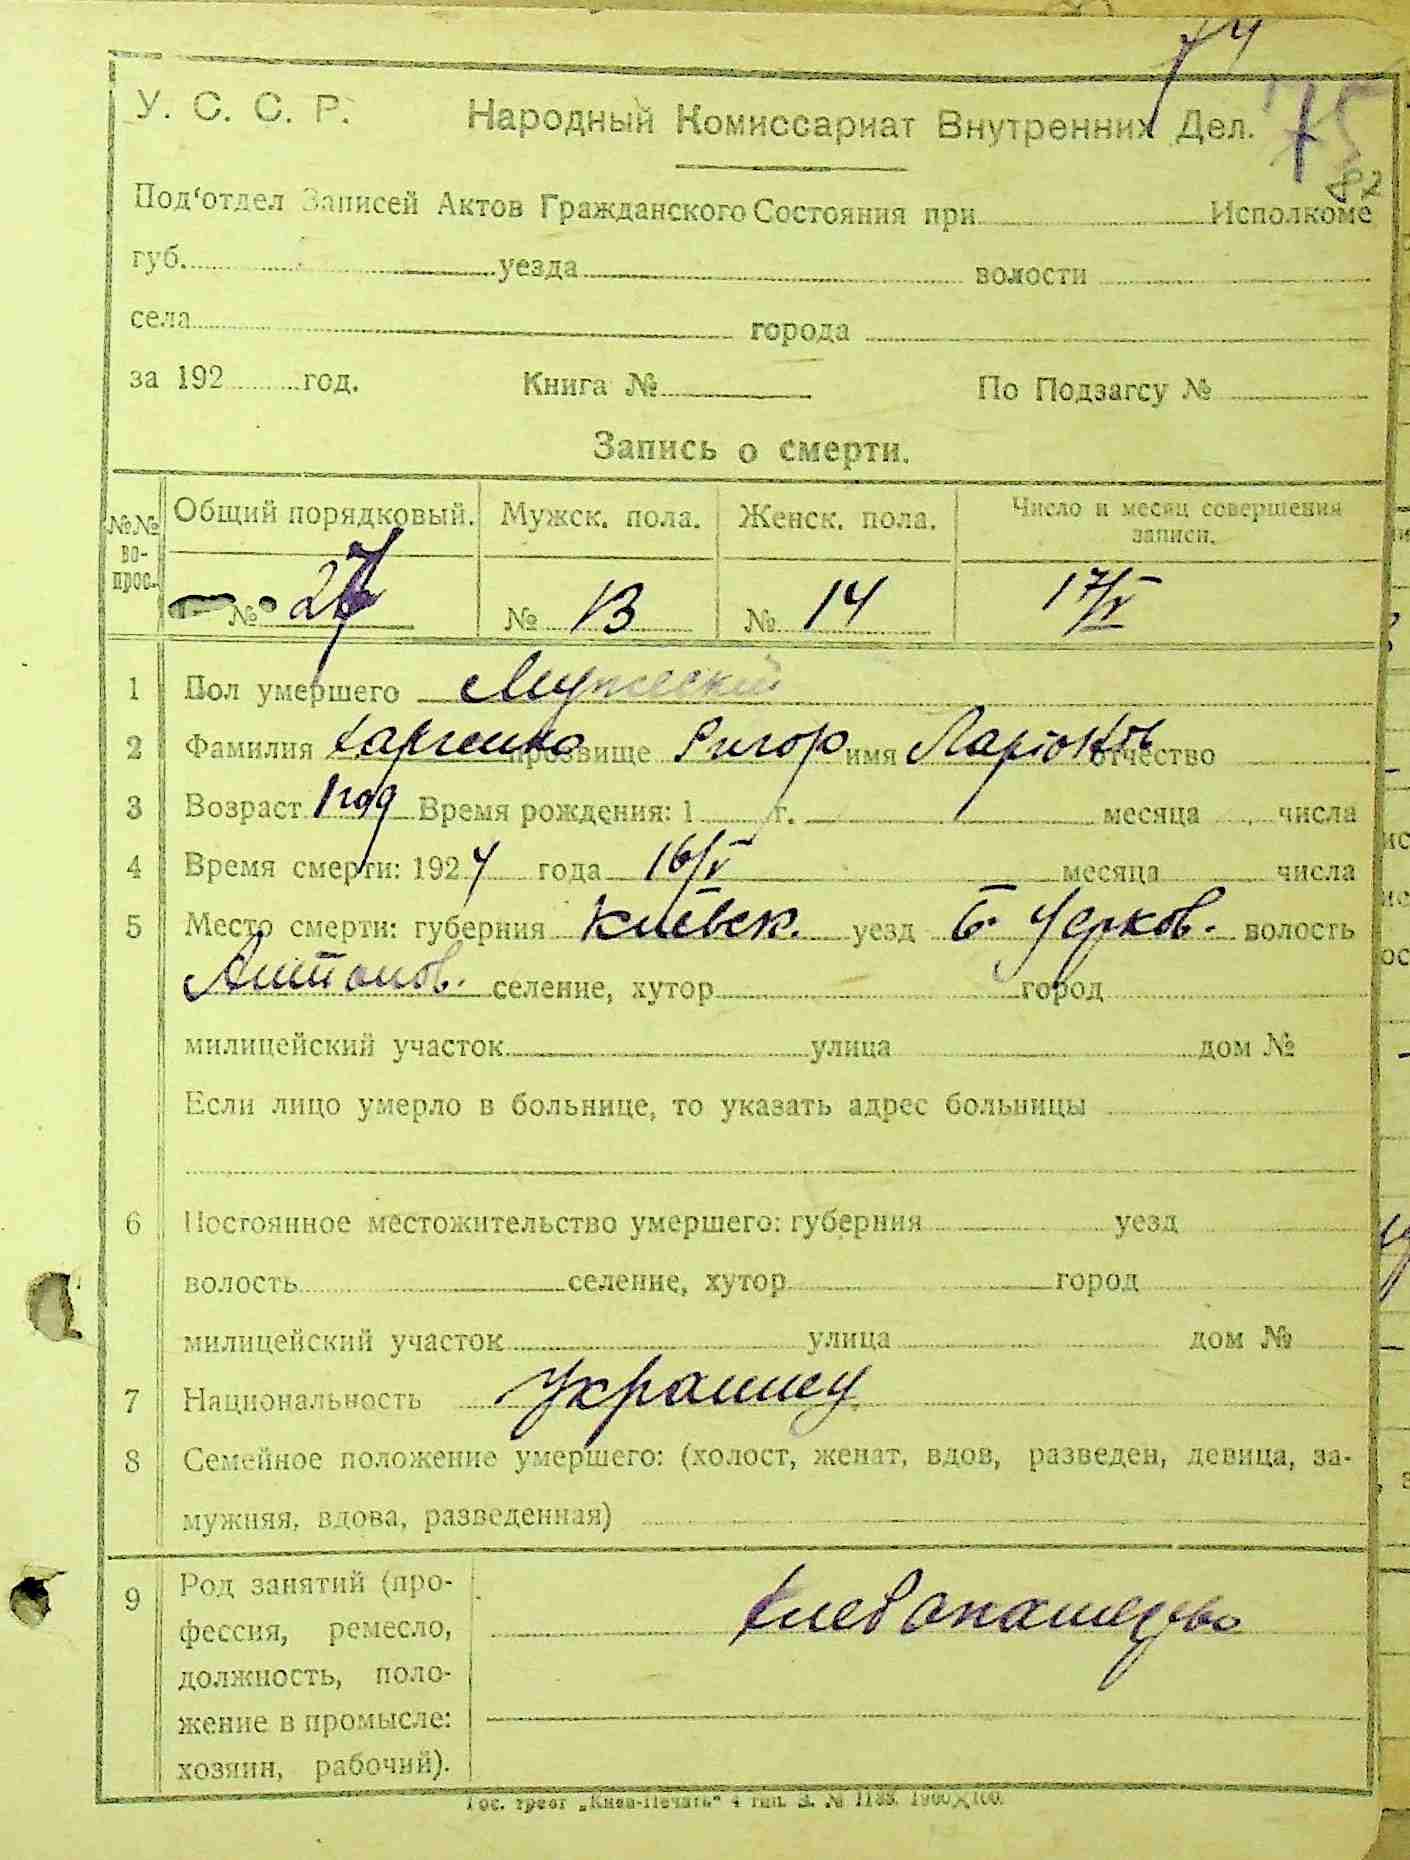 74
75
82
У. С. С. Р. Народный Комиссариат Внутренних Дел.
Под‘отдел Записей Актов Гражданского Состояния при Исполкоме
губ. уезда волости
села города
за 192 год. Книга № По Подзагсу №
Запись о смерти.
№№ во- прос. Общий порядковый. Мужск. пола. Женск. пола. Число и месяц совершения записи.
№ 27 № 13 № 14 17/V
1 Пол умершего Мужеский
2 Фамилия прозвище Ригор имя отчество
3 Возраст 1 год Время рождения: 1 г. месяца числа
4 Время смерти: 1924 года 16/V месяца числа
5 Место смерти: губерния Киевск. уезд Б. Церков. волость
Антонов. селение, хутор город
милицейский участок улица дом №
Если лицо умерло в больнице, то указать адрес больницы
6 Постоянное местожительство умершего: губерния уезд
волость селение, хутор город
милицейский участок улица дом №
7 Национальность Украинец
8 Семейное положение умершего: (холост, женат, вдов, разведен, девица, за-
мужняя, вдова, разведенная)
9 Род занятий (про-
фессия, ремесло,
должность, поло-
жение в промысле:
хозяин, рабочий).
Гос. трест „Киев-Печать“ 4 тип. З. № 1188. 1900×100.